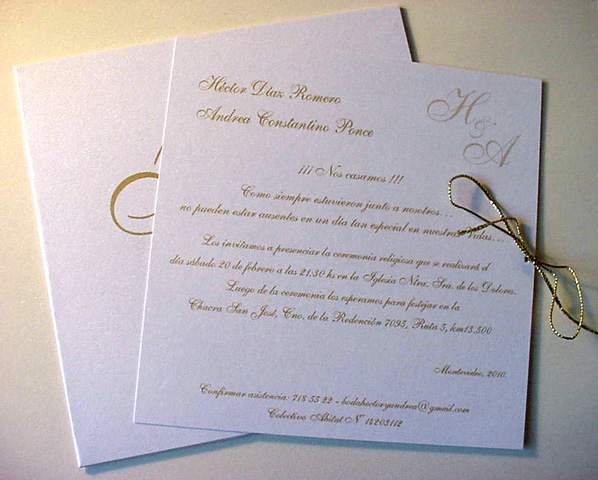 Héctor Díaz Romero
Andrea Constantino Ponce
H
&
A
¡¡¡ Nos casamos !!!
Como siempre estuvieron junto a nosotros...
no pueden estar ausentes en un día tan especial en nuestras vidas...
Los invitamos a presenciar la ceremonia religiosa que se realizará el
día sábado 20 de febrero a las 21:30 hs en la Iglesia Ntra. Sra. de los Dolores.
Luego de la ceremonia los esperamos para festejar en la
Chacra San José, Cno. de la Redención 7095, Ruta 5, km13.500
Montevideo, 2010.
Confirmar asistencia: 718 55 22 - bodahectoryandrea@gmail.com
Colectivo Abitab Nº 14203112